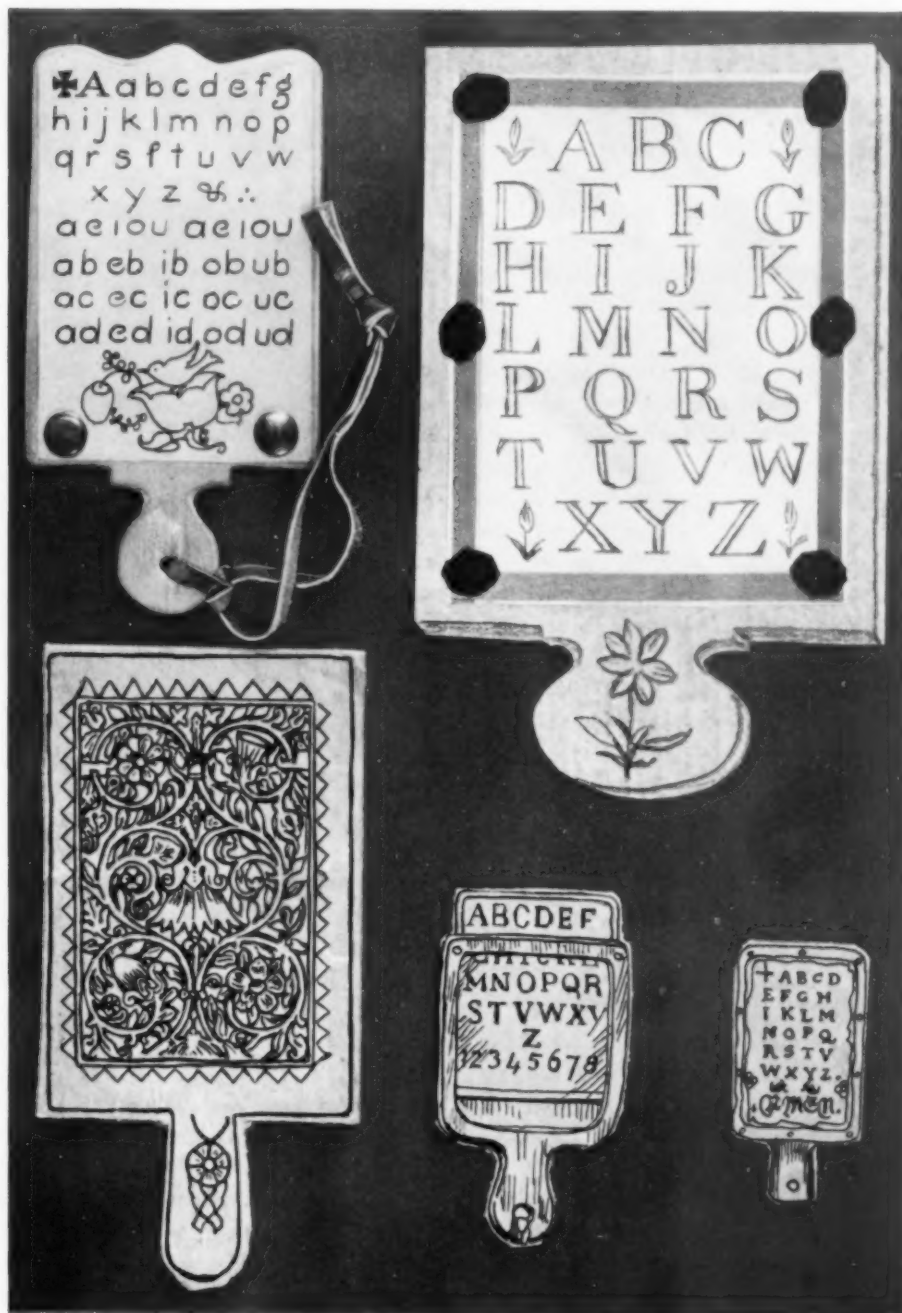 ✠Aabcdefg
hijklmnop
qrsſtuvw
xyz & ∴
aeiou aeiou
ab eb ib ob ub
ac ec ic oc uc
ad ed id od ud
A B C
D E F G
H I J K
L M N O
P Q R S
T U V W
X Y Z
ABCDEF
MNOPQR
STVWXY
Z
12345678
+ABCD
EFGH
IKLM
NOPQ
RSTV
WXYZ.
Amen.